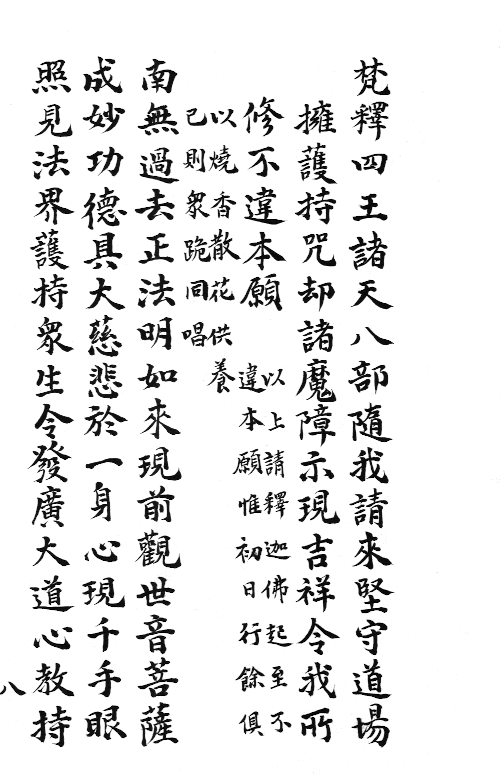 梵釋四王諸天八部隨我請來堅守道場
擁護持咒却諸魔障示現吉祥令我所
修不違本願
以上請釋迦佛起至不
違本願惟初日行餘俱
以燒香散花供養
已則衆跪同唱
南無過去正法明如來現前觀世音菩薩
成妙功德具大慈悲於一身心現千手眼
照見法界護持衆生令發廣大道心教持
八